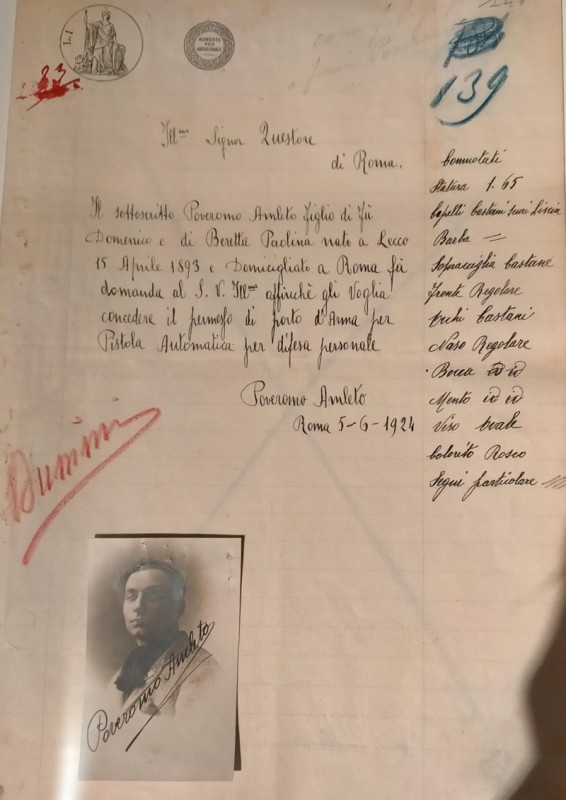 L.1
AUMENTO
PER
ADDIZIONALE
33
139
Ill.mo Signor Questore
di Roma.
Il sottoscritto Poveromo Amleto figlio di Fù
Domenico e di Beretta Paolina nato a Lecco
15 Aprile 1893 e Domicigliato a Roma fà
domanda al S. V. Ill.mo affinchè gli Voglia
concedere il permesso di porto d'Arma per
Pistola Automatica per difesa personale
Poveromo Amleto
Roma 5-6-1924
Connotati
Statura 1.65
Capelli Castani scuri Liscia
Barba =
Sopracciglia Castane
Fronte Regolare
Occhi Castani
Naso Regolare
Bocca id id
Mento id id
Viso Ovale
Colorito Roseo
Segni particolare
Dumini
Poveromo Amleto